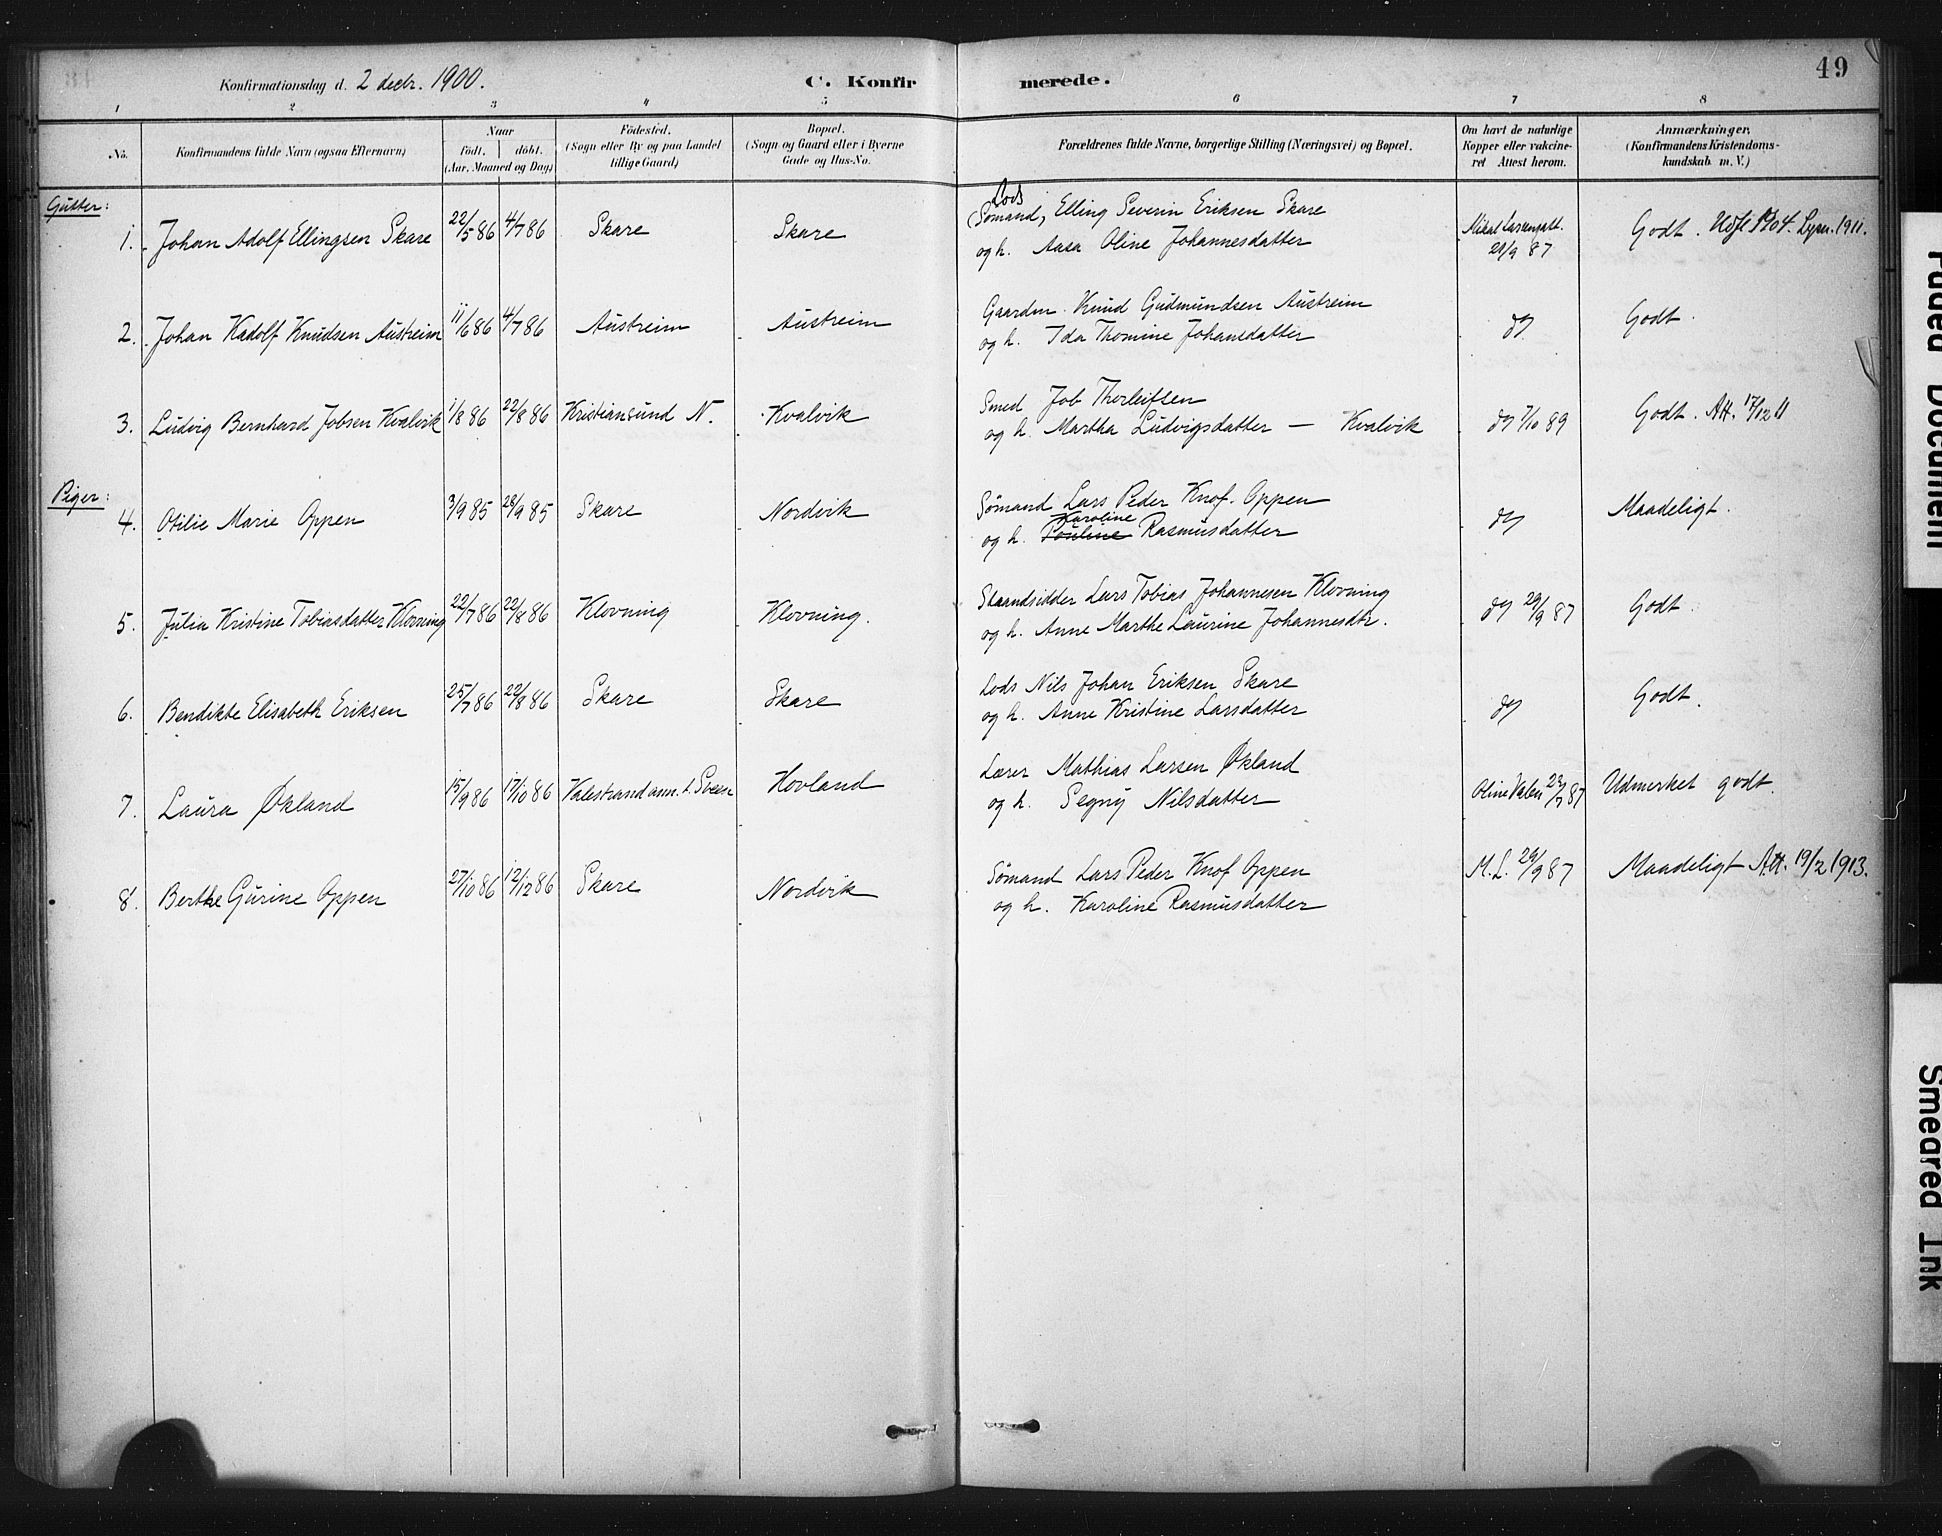 Konfirmationsdag d. 2 decbr. 1900.
C. Konfirmerede.
49
1 2 3 4 5 6 7 8
No.
Konfirmandens fulde Navn (ogsaa Efternavn)
Naar
födt. döbt.
(Aar, Maaned og Dag)
Födested.
(Sogn eller By og paa Landet
tillige Gaard)
Bopæl.
(Sogn og Gaard eller i Byerne
Gade og Hus-No.
Forældrenes fulde Navne, borgerlige Stilling (Næringsvei) og Bopæl.
Om havt de naturlige
Kopper eller vakcine-
ret Attest herom.
Anmærkninger.
(Konfirmandens Kristendoms-
kundskab m. V.)
Gutter:
1. Johan Adolf Ellingsen Skare 22/5 86 4/7 86 Skare Skare
Lods
(Sømand, Elling Severin Eriksen Skare
og h. Aasa Oline Johannesdatter
Mikal Larsen
29/9 87
Godt. 1911.
2. Johan Kadolf Knudsen Austreim 11/6 86 4/7 86 Austreim Austreim
Gaardm. Knud Gudmundsen Austreim
og h. Ida Thomine Johansdatter
do Godt.
3. Ludvig Bernhard Jobsen Kvalvik 1/8 86 22/8 86 Kristiansund N. Kvalvik
Smed Job Thorleifsen
og h. Martha Ludvigsdatter — Kvalvik
do 7/10 89 Godt. Att. 17/12 11
Piger:
4. Otilie Marie Oppen 3/9 85 28/9 85 Skare Nordvik
Sømand Lars Peder Knof. Oppen
Karoline
og h. Pouline Rasmusdatter
do Maadeligt.
5. Julia Kristine Tobiasdatter Klovning 22/7 86 22/8 86 Klovning Klovning.
Strandsidder Lars Tobias Johannesen Klovning
og h. Anne Marthe Laurine Johannesdtr.
do 29/9 87 Godt
6. Bendikte Elisabeth Eriksen 25/7 86 22/8 86 Skare Skare
Lods Nils Johan Eriksen Skare
og h. Anne Kristine Larsdatter
do Godt.
7. Laura Økland 15/9 86 17/10 86 Valestrand ann. t. Sveen Hovland
Lærer Mathias Larsen Økland
og h. Segny Nilsdatter
Oline Valen 23/7 87 Udmerket godt.
8. Berthe Gurine Oppen 27/10 86 12/12 86 Skare Nordvik
Sømand Lars Peder Knof Oppen
og h. Karoline Rasmusdatter
M. L. 29/9 87 Maadeligt Att. 19/2 1913.
Faded Document
Smeared Ink